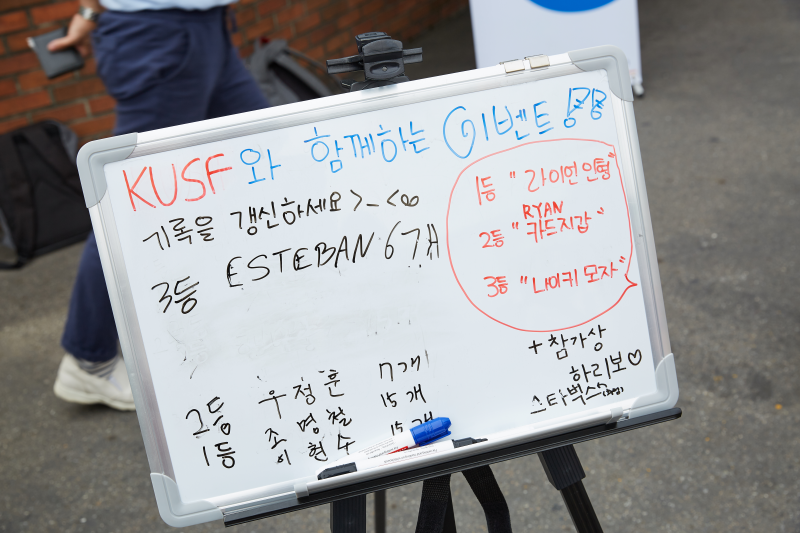 KUSF와 함께하는 이벤트
기록을 갱신하세요 >_<
3등 ESTEBAN 6개
2등 우정훈 7개
1등 조명철 15개
이현수 15개
1등 "라이언 인형"
RYAN
2등 "카드지갑"
3등 "나이키 모자"
+ 참가상
하리보♡
스타벅스